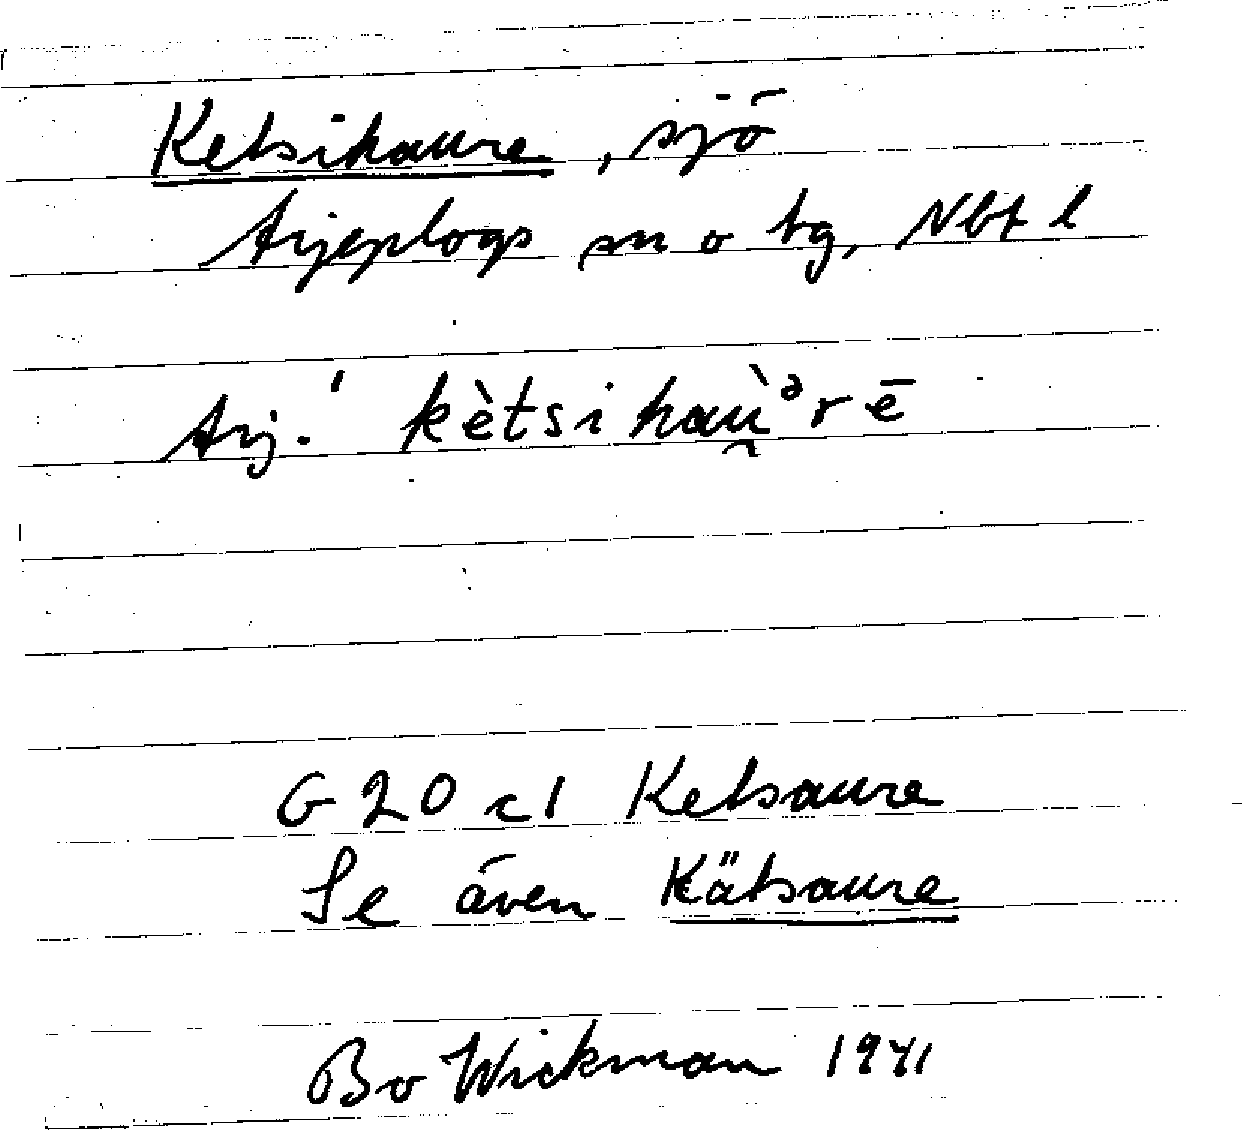 Ketsihaure, sjö
Arjeplogs sn o tg, Nbt l
Arj.' kètsihaù̯ᵊrē
G 20 c1 Ketsaure
Se även Kätsaure
Bo Wickman 1941